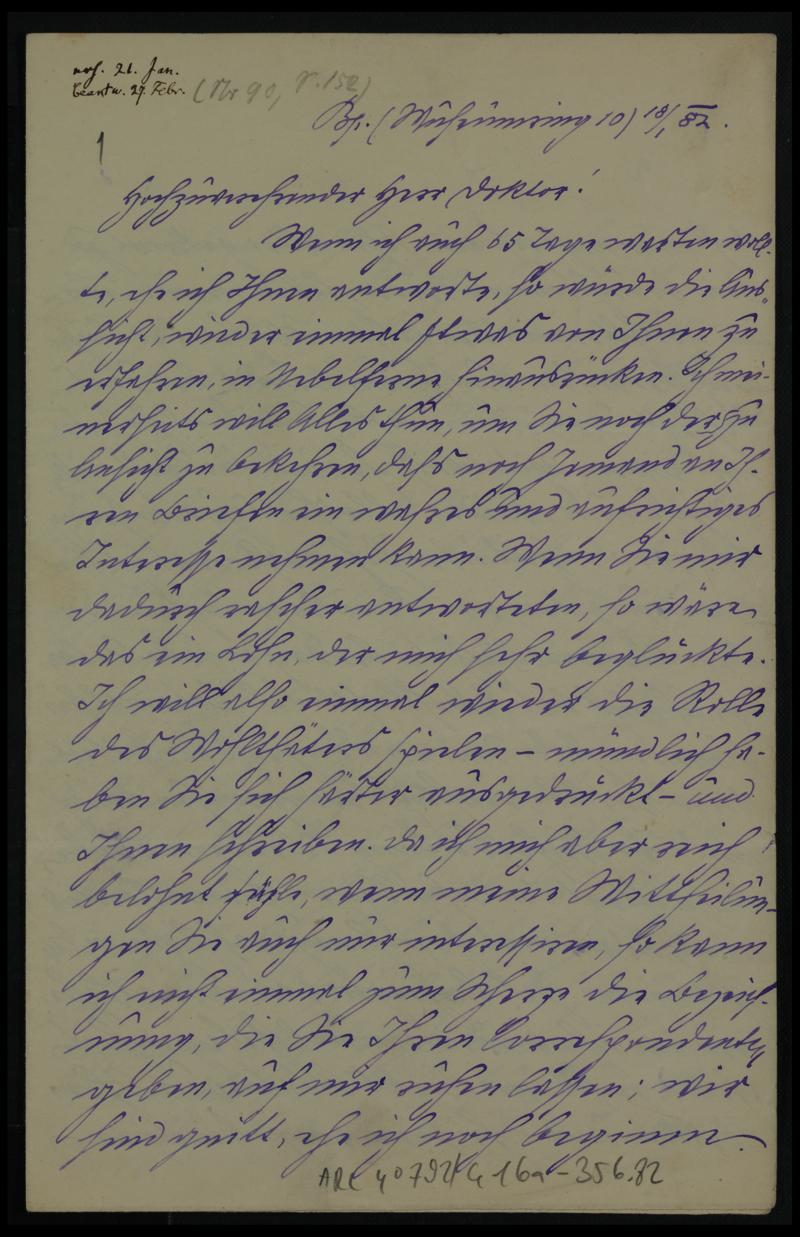 erh. 21. Jan.
beantw. 27. Febr. (Nr 90,
18/1 82.
1
Hochzuverehrender Herr Doktor!
Wenn ich auch 65 Tage warten woll-
te, ehe ich Ihnen antworte, so würde die Aus-
sicht, wieder einmal Etwas von Ihnen zu
erfahren, in Nebelferne hinausrücken. Ich mei-
nerseits will Alles thun, um Sie noch der zu
Ansicht zu bekehren, daß noch Jemand an Ih-
ren Briefen ein wahres und aufrichtiges
Interesse nehmen kann. Wenn Sie mir
dadurch rascher antworteten, so wäre
das ein Lohn, der mich sehr beglückte.
Ich will also einmal wieder die Rolle
des Wohlthäters spielen – mündlich ha-
ben Sie sich härter ausgedrückt – und
Ihnen schreiben. Da ich mich aber reich
belohnt fühle, wenn meine Mittheilun-
gen Sie auch nur interessiren, so kann
ich nicht einmal zum Scherze die Bezeich-
nung, die Sie Ihren Correspondenten
geben, auf mir ruhen lassen; wir
sind quitt, ehe ich noch beginne.
ARC 4° 792/G 16a-356.82